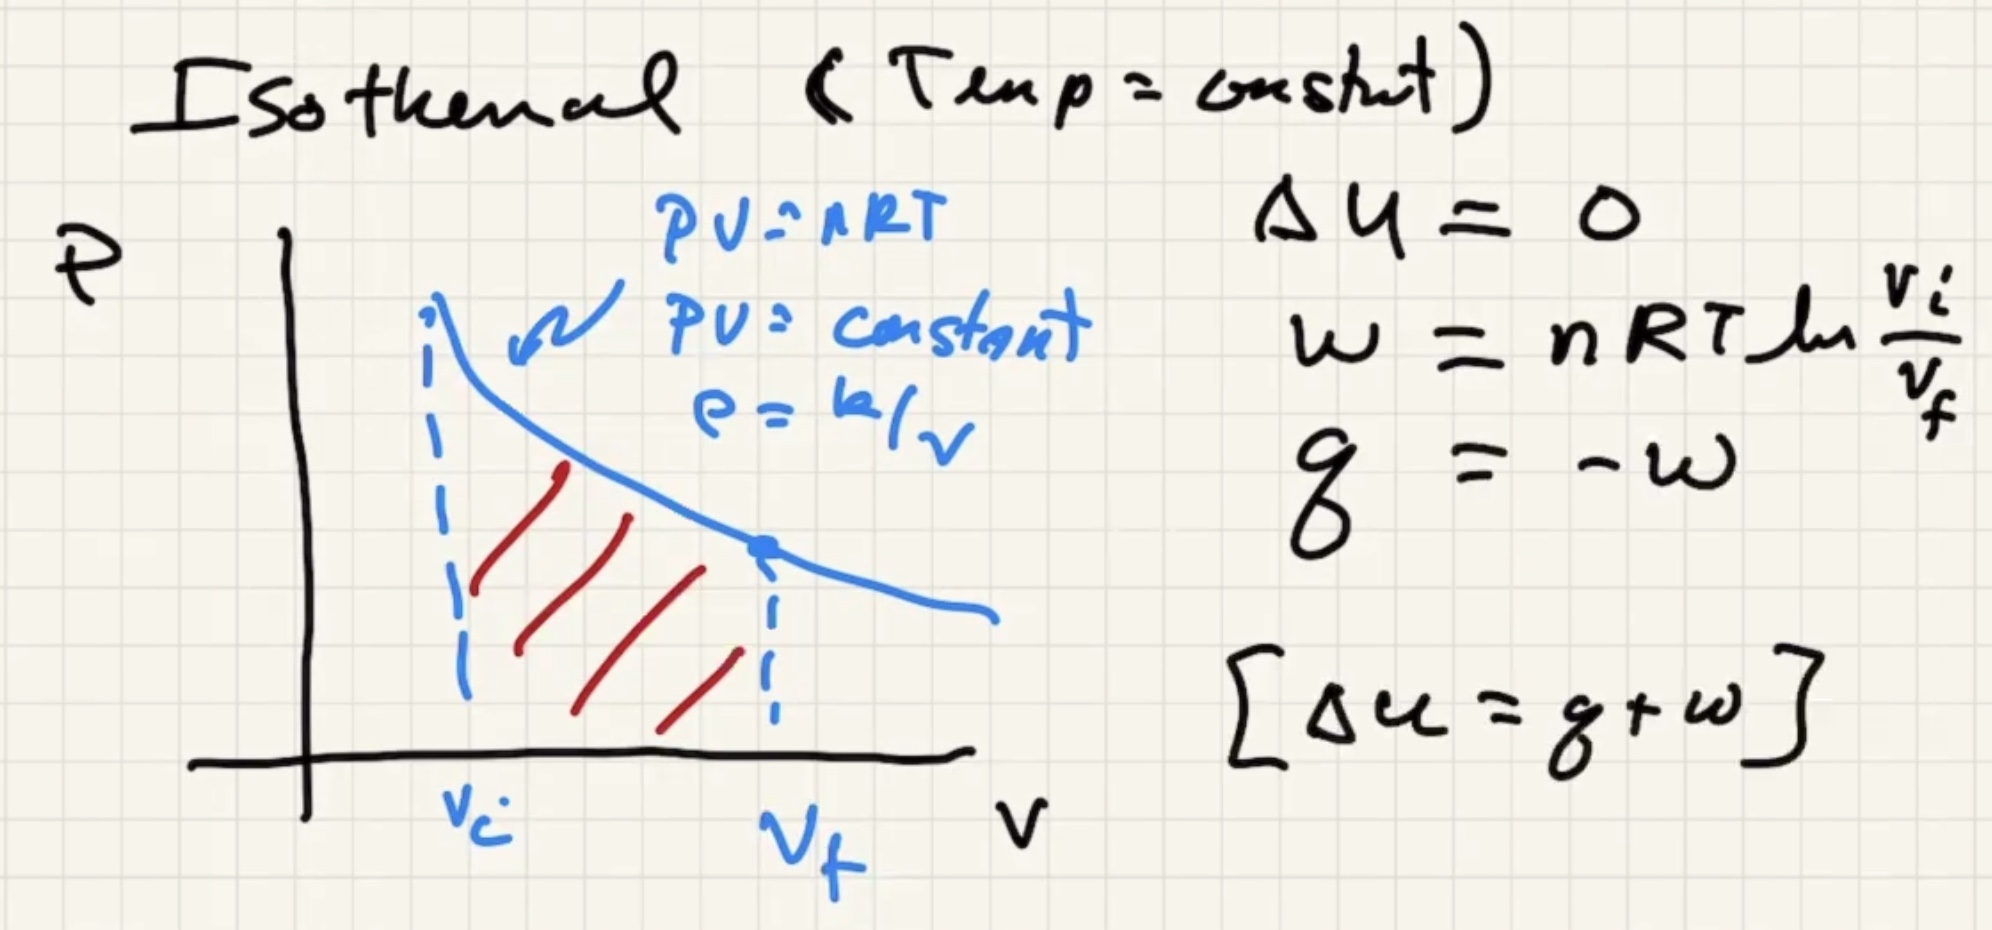 Isothermal (Temp = constant)
P
PV = nRT
PV = constant
P = k/V
Vi
Vf
V
ΔU = 0
w = nRT ln Vi/Vf
q = -w
[ΔU = q + w]